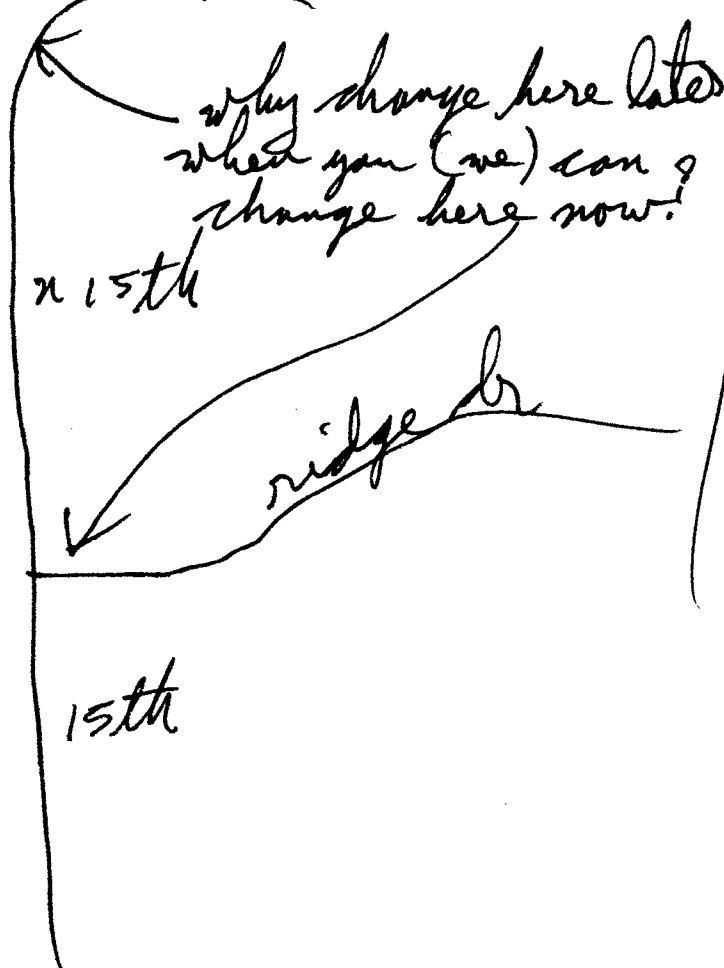 why change here later
when you (we) can
change here now?
n 15th
ridge dr
15th